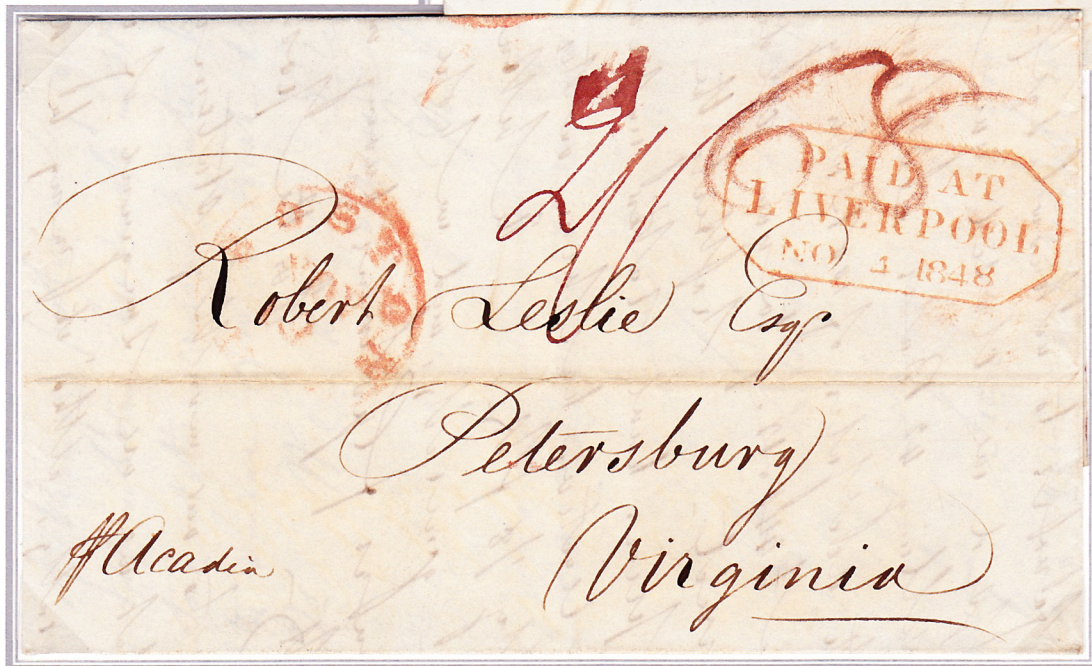 2/
PAID AT
LIVERPOOL
NO 4 1848
BOSTON
Robert Leslie Esqr
Petersburg
Virginia
⅌ Acadia